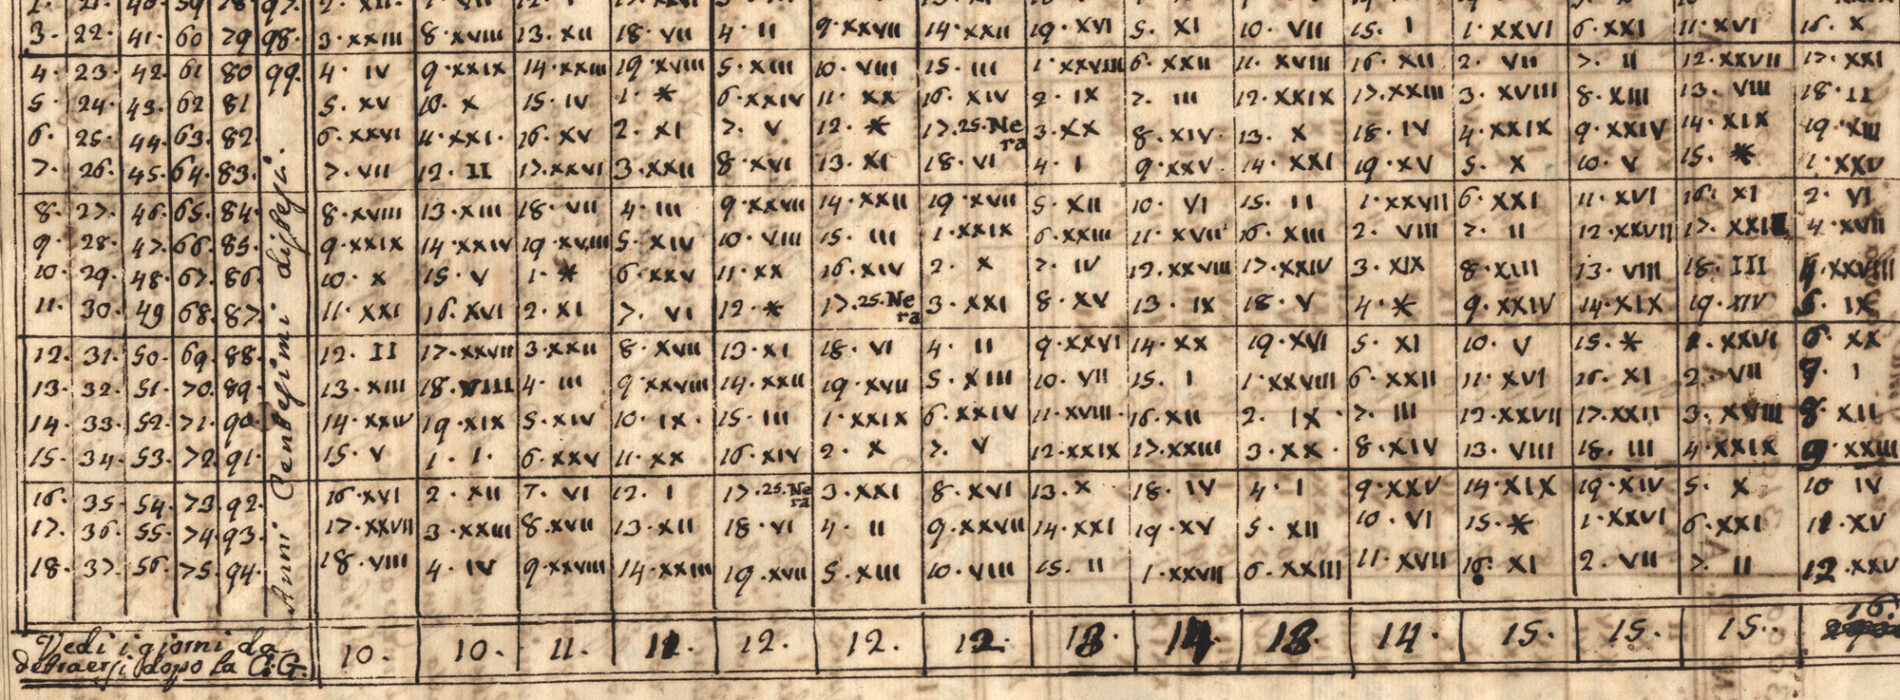 3. 22. 41. 60 79 98. 3. XXIII 8. XVIII 13. XII 18. VII 4. II 9. XXVII 14. XXII 19. XVI 5. XI 10. VII 15. I 1. XXVI 6. XXI 11. XVI 16. X
4. 23. 42. 61 80 99. 4. IV 9. XXIX 14. XXIII 19. XVIII 5. XIII 10. VIII 15. III 1. XXVIII 6. XXII 11. XVIII 16. XII 2. VII 7. II 12. XXVII 17. XXI
5. 24. 43. 62 81 5. XV 10. X 15. IV 1. * 6. XXIV 11. XX 16. XIV 2. IX 7. III 12. XXIX 17. XXIII 3. XVIII 8. XIII 13. VIII 18. II
6. 25. 44. 63. 82. 6. XXVI 11. XXI. 16. XV 2. XI 7. V 12. * 17. 25. Nera 3. XX 8. XIV. 13. X 18. IV 4. XXIX 9. XXIV 14. XIX 19. XIII
7. 26. 45. 64. 83. 7. VII 12. II 17. XXVI 3. XXII 8. XVI 13. XI 18. VI 4. I 9. XXV 14. XXI 19. XV 5. X 10. V 15. * 1. XXV
8. 27. 46. 65. 84. 8. XVIII 13. XIII 18. VII 4. III 9. XXVII 14. XXII 19. XVII 5. XII 10. VI 15. II 1. XXVII 6. XXI 11. XVI 16. XI 2. VI
9. 28. 47. 66. 85. 9. XXIX 14. XXIV 19. XVIII 5. XIV 10. VIII 15. III 1. XXIX 6. XXIII 11. XVII 16. XIII 2. VIII 7. II 12. XXVII 17. 4. XVII
10. 29. 48. 67. 86. 10. X 15. V 1. * 6. XXV 11. XX 16. XIV 2. X 7. IV 12. XXVIII 17. XXIV 3. XIX 8. XIII 13. VIII 18. III XXVIII
11. 30. 49 68. 87. 11. XXI 16. XVI 2. XI 7. VI 12. * 17. 25. Nera 3. XXI 8. XV 13. IX 18. V 4. * 9. XXIV 14. XIX 19. XIV 5. IX
12. 31. 50. 69. 88. 12. II 17. XXVII 3. XXII 8. XVII 13. XI 18. VI 4. II 9. XXVI 14. XX 19. XVI 5. XI 10. V 15. * 1. XXVI 6. XX
13. 32. 51. 70. 89. 13. XIII 18. VIII 4. III 9 XXVIII 14. XXII 19. XVII 5. XIII 10. VII 15. I 1. XXVIII 6. XXII 11. XVI 16. XI 2. VII 7. I
14. 33. 52. 71. 90. 14. XXIV 19. XIX 5. XIV 10. IX. 15. III 1. XXIX 6. XXIV 11. XVIII. 16. XII 2. IX. 7. III 12. XXVII 17. XXII 3. XVIII 8. XII
15. 34. 53. 72. 91. 15. V 1. I. 6. XXV 11. XX 16. XIV 2. X 7. V 12. XXIX 17. XXIII 3. XX. 8. XIV 13. VIII 18. III 4. XXIX 9. XXIII
16. 35. 54. 73. 92. 16. XVI 2. XII 7. VI 12. I 17. 25. Nera 3. XXI 8. XVI 13. X 18. IV 4. I 9. XXV 14. XIX 19. XIV 5. X 10 IV
17. 36. 55. 74. 93. 17. XXVII 3. XXIII 8. XVII 13. XII 18. VI 4. II 9. XXVII 14. XXI 19. XV 5. XII 10. VI 15. * 1. XXVI 6. XXI 11. XV
18. 37. 56. 75. 94. 18. VIII 4. IV 9. XXVIII 14. XXIII 19. XVII 5. XIII 10. VIII 15. II 1. XXVII 6. XXIII 11. XVII 16. XI 2. VII 7. II 12. XXV
Anni Centesimi
Vedi i giorni da 10. 10. 11. 11. 12. 12. 12. 13 14. 13. 14. 15. 15. 15. 16.
detraersi dopo la C.G.